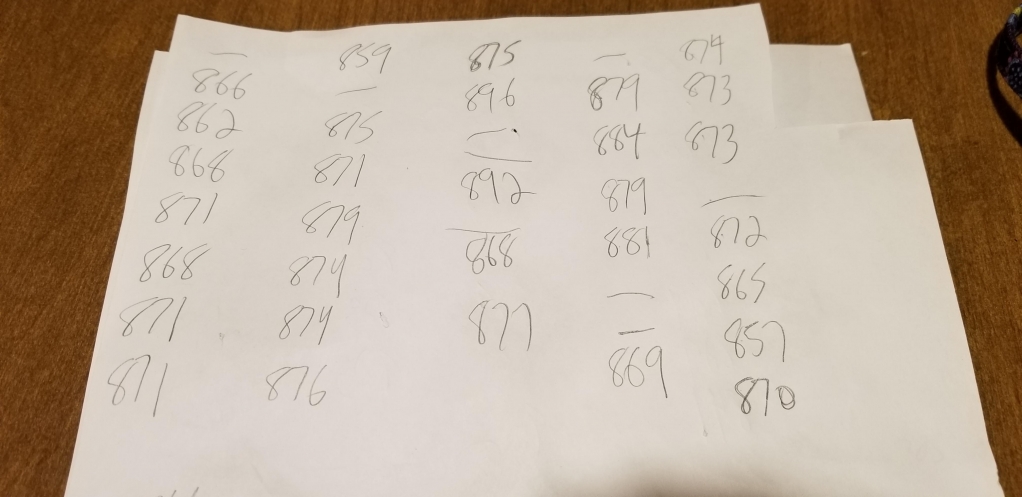 —
866
862
868
871
868
871
871
859
—
875
871
879
874
874
876
875
896
—
—
892
—
868
877
—
879
884
879
881
—
—
869
874
873
873
—
872
865
857
870